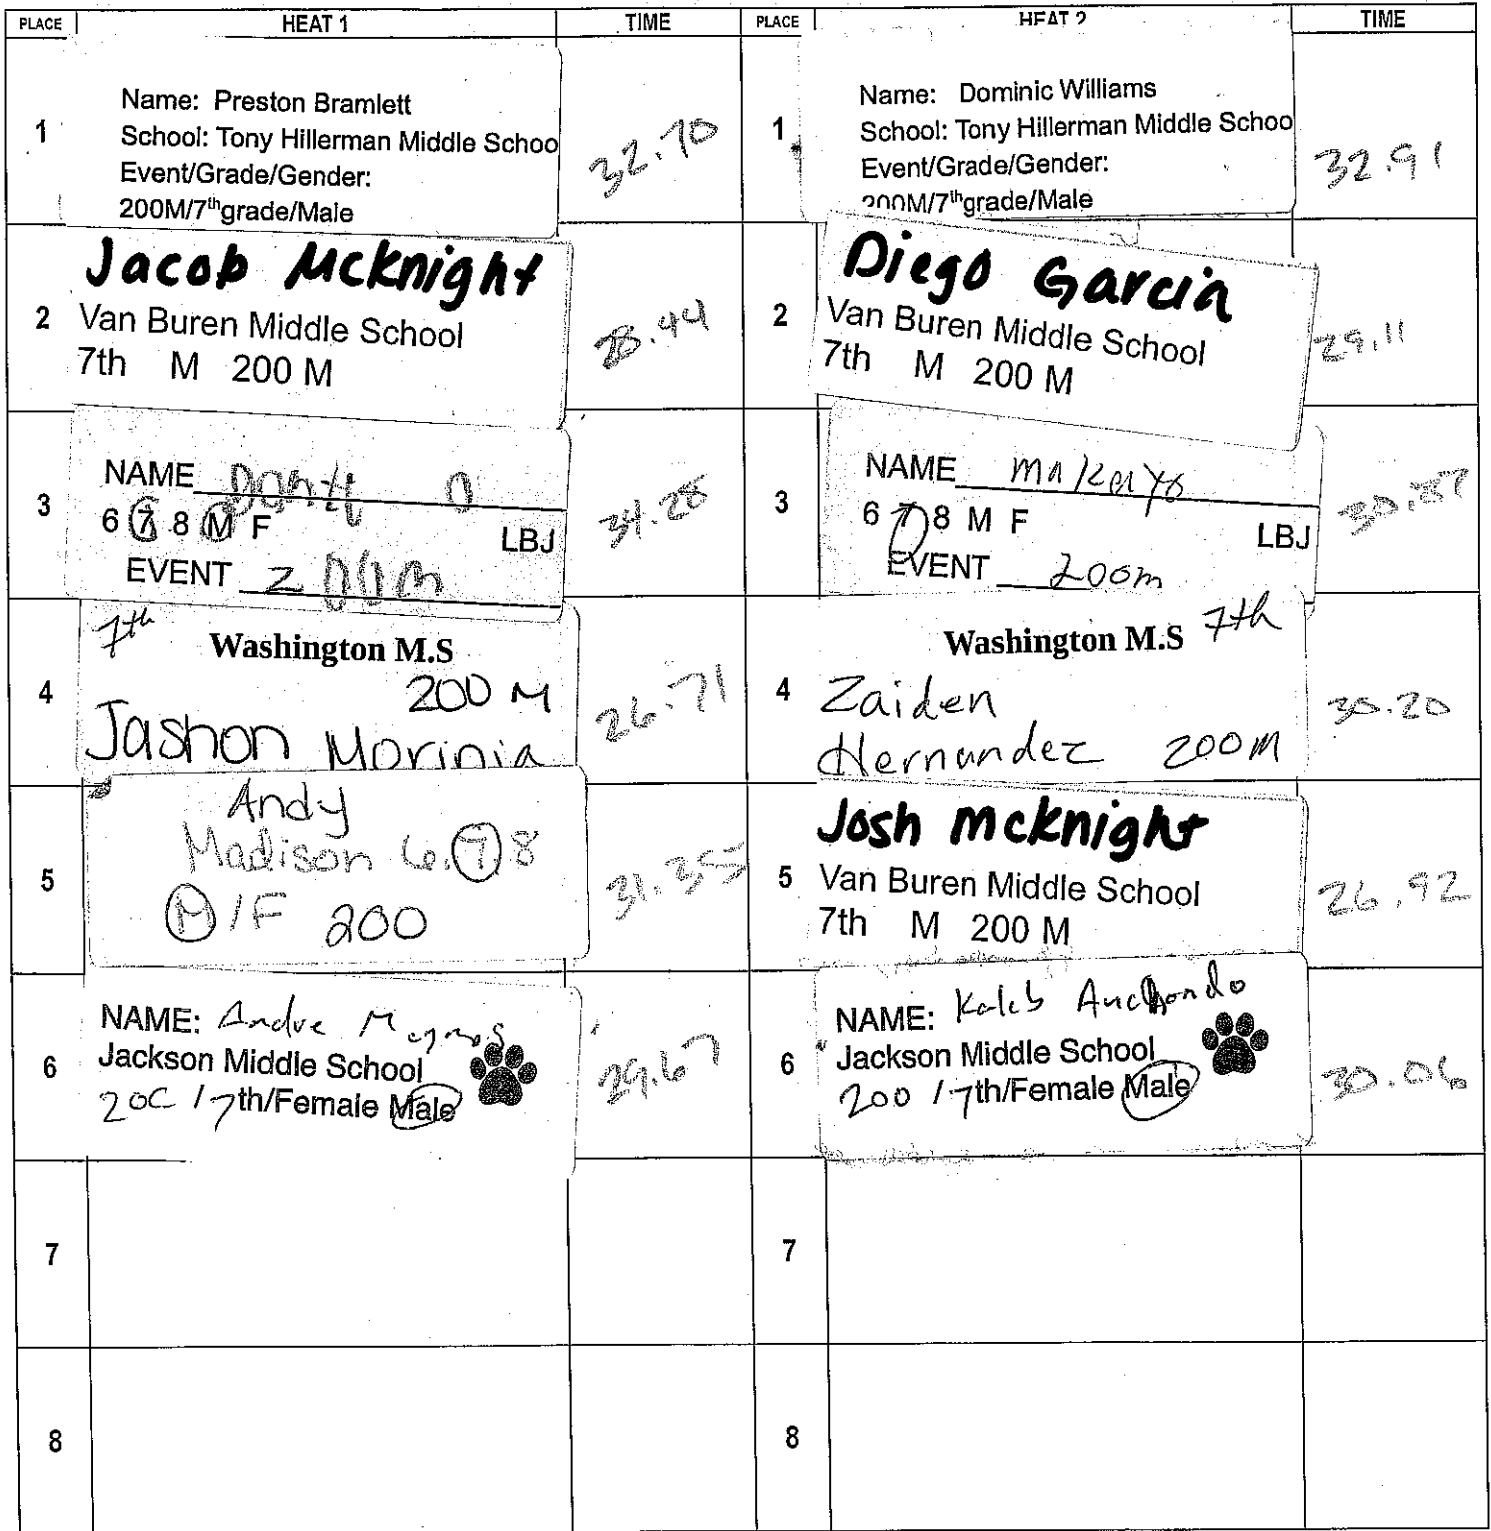 PLACE HEAT 1 TIME PLACE HEAT 2 TIME
1
Name: Preston Bramlett
School: Tony Hillerman Middle Schoo
Event/Grade/Gender:
200M/7thgrade/Male
32.70
1
Name: Dominic Williams
School: Tony Hillerman Middle Schoo
Event/Grade/Gender:
200M/7thgrade/Male
32.91
2
Jacob McKnight
Van Buren Middle School
7th M 200 M
28.44
2
Diego Garcia
Van Buren Middle School
7th M 200 M
29.11
3
NAME
6 7 8 M F LBJ
EVENT 200m
34.28
3
NAME makaya
6 7 8 M F LBJ
EVENT 200m
4
7th Washington M.S
200 M
Jashon Morinia
26.71
4
Washington M.S 7th
Zaiden
Hernandez 200M
30.20
5
Andy
Madison 6.7 8
M/F 200
31.35
5
Josh mcknight
Van Buren Middle School
7th M 200 M
26.92
6
NAME: Andre
Jackson Middle School
200 / 7th/Female Male
29.67
6
NAME: Kaleb Anchondo
Jackson Middle School
200 / 7th/Female Male
30.06
7
7
8
8